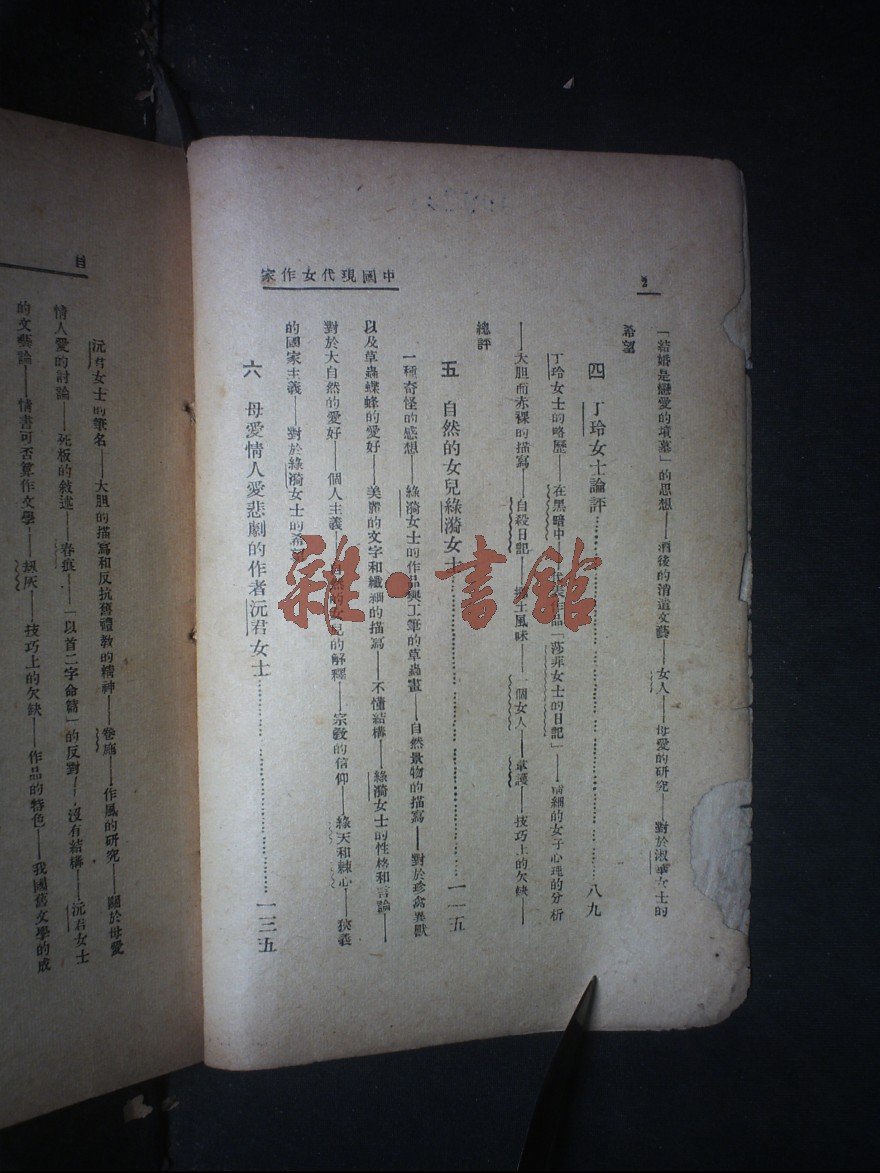 中國現代女作家
2
「結婚是戀愛的墳墓」的思想——酒後的消遣文藝——女人——母愛的研究——對於淑華女士的
希望
四 丁玲女士論評……八九
丁玲女士的略歷——在黑暗中——代表作品「莎菲女士的日記」——精細的女子心理的分析
——大胆而赤裸的描寫——自殺日記——鄉土風味——一個女人——韋護——技巧上的欠缺——
總評
五 自然的女兒綠漪女士……一一五
一種奇怪的感想——綠漪女士的作品與工筆的草蟲畫——自然景物的描寫——對於珍禽異獸
以及草蟲蝶蜂的愛好——美麗的文字和纖細的描寫——不懂結構——綠漪女士的性格和言論——
對於大自然的愛好——個人主義——自然的女兒的解釋——宗敎的信仰——綠天和棘心——狹義
的國家主義——對於綠漪女士的希望
六 母愛情人愛悲劇的作者沅君女士……一三五
目
沅君女士的筆名——大胆的描寫和反抗舊禮教的精神——卷葹——作風的研究——關於母愛
情人愛的討論——死板的敘述——春痕——「以首二字命篇」的反對——沒有結構——沅君女士
的文藝論——情書可否算作文學——劫灰——技巧上的欠缺——作品的特色——我國舊文學的成
雜·書館